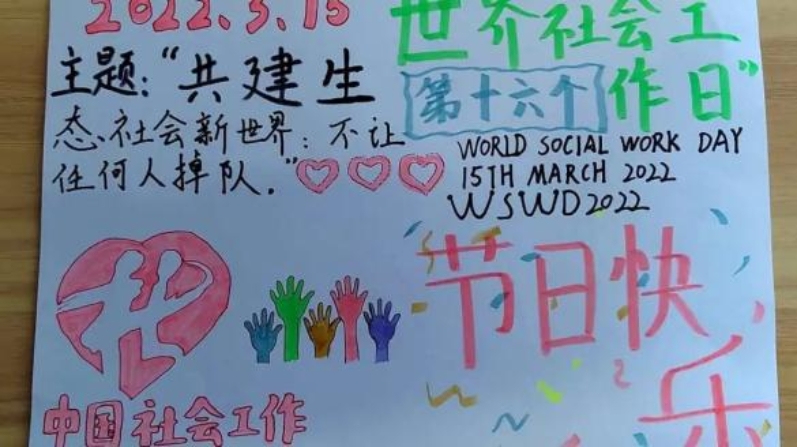 2022.3.15
主题：“共建生
态社会新世界：不让
任何人掉队.”
世界社会工
第十六个
作日”
WORLD SOCIAL WORK DAY
15TH MARCH 2022
WSWD2022
节日快
乐
中国社会工作